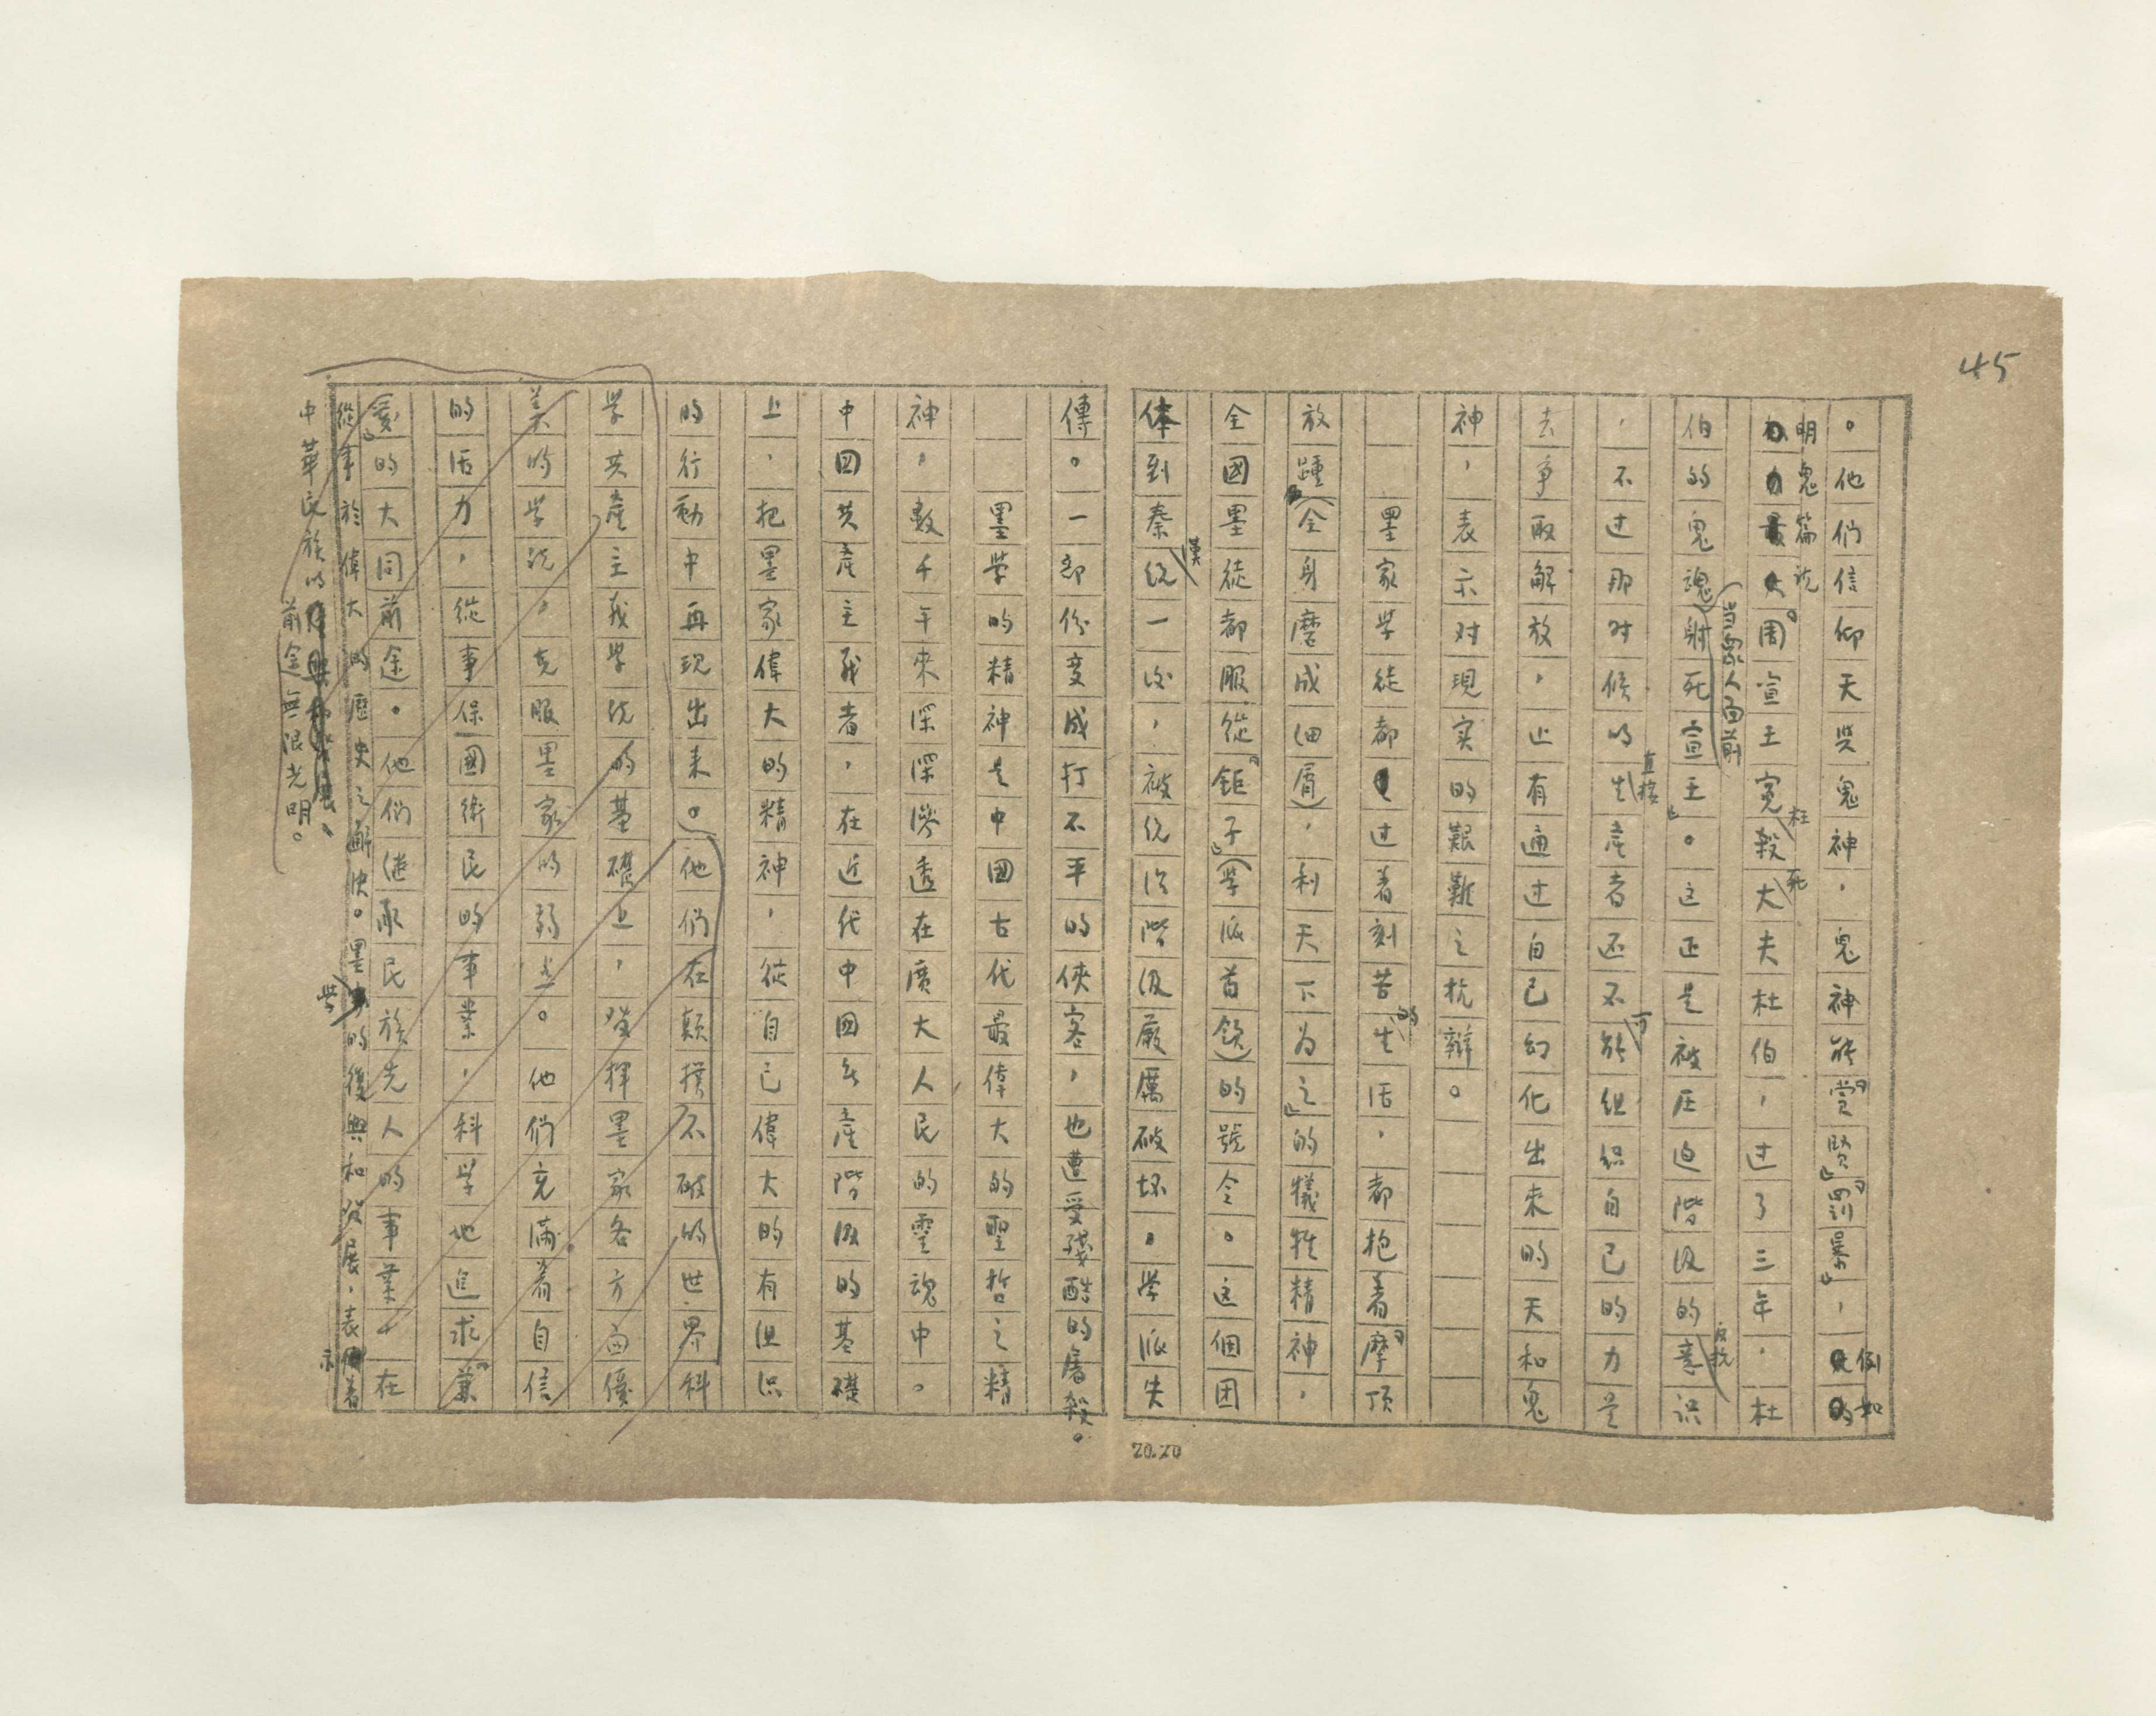 45
。他们信仰天與鬼神，鬼神能『賞賢』『罰暴』，例如
明鬼篇说。周宣王冤枉殺死大夫杜伯，过了三年，杜
伯的鬼魂(当眾人面前)射死宣王』。这正是被圧迫階级的反抗意识
，不过那时候的直接生產者还不可能组织自己的力量
去争取解放，止有通过自己幻化出來的天和鬼
神，表示对現实的艱難之抗辯。
墨家学徒都过着刻苦的生活，都抱着『摩顶
放踵(全身磨成细屑)，利天下为之』的犠牲精神，
全國墨徒都服從『鉅子』(学派首领)的號令。这個团
体到秦漢统一后，被统治階级嚴厲破坏。学派失
傳。一部份变成打不平的俠客，也遭受殘酷的屠殺。
墨学的精神是中國古代最偉大的聖哲之精
神，數千年來深深滲透在廣大人民的靈魂中。
中国共產主義者，在近代中國無產階级的基礎
上，把墨家偉大的精神，從自己偉大的有组织
的行動中再現出来。他们在顛撲不破的世界科
学共產主義学说的基礎上，發揮墨家各方面優
美的学说，克服墨家的弱点。他们充满着自信
的活力，從事保國衛民的事業，科学地追求『兼
愛』的大同前途。他们继承民族先人的事業，在
從事於偉大的歷史之解决。墨学的復興和發展，表示着
中華民族的前途無限光明。
20.20